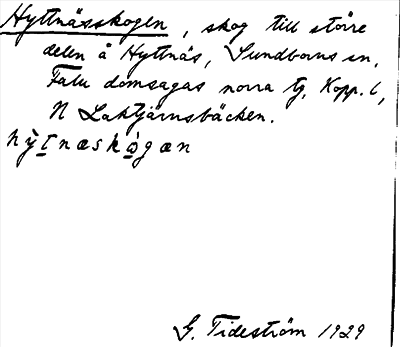 Hyttnässkogen, skog till större
delen å Hyttnäs, Sundborns sn,
Falu domsagas norra tg, Kopp. l,
N Laktjärnsbäcken.
hỳt̲næskógæn
G. Tideström 1929